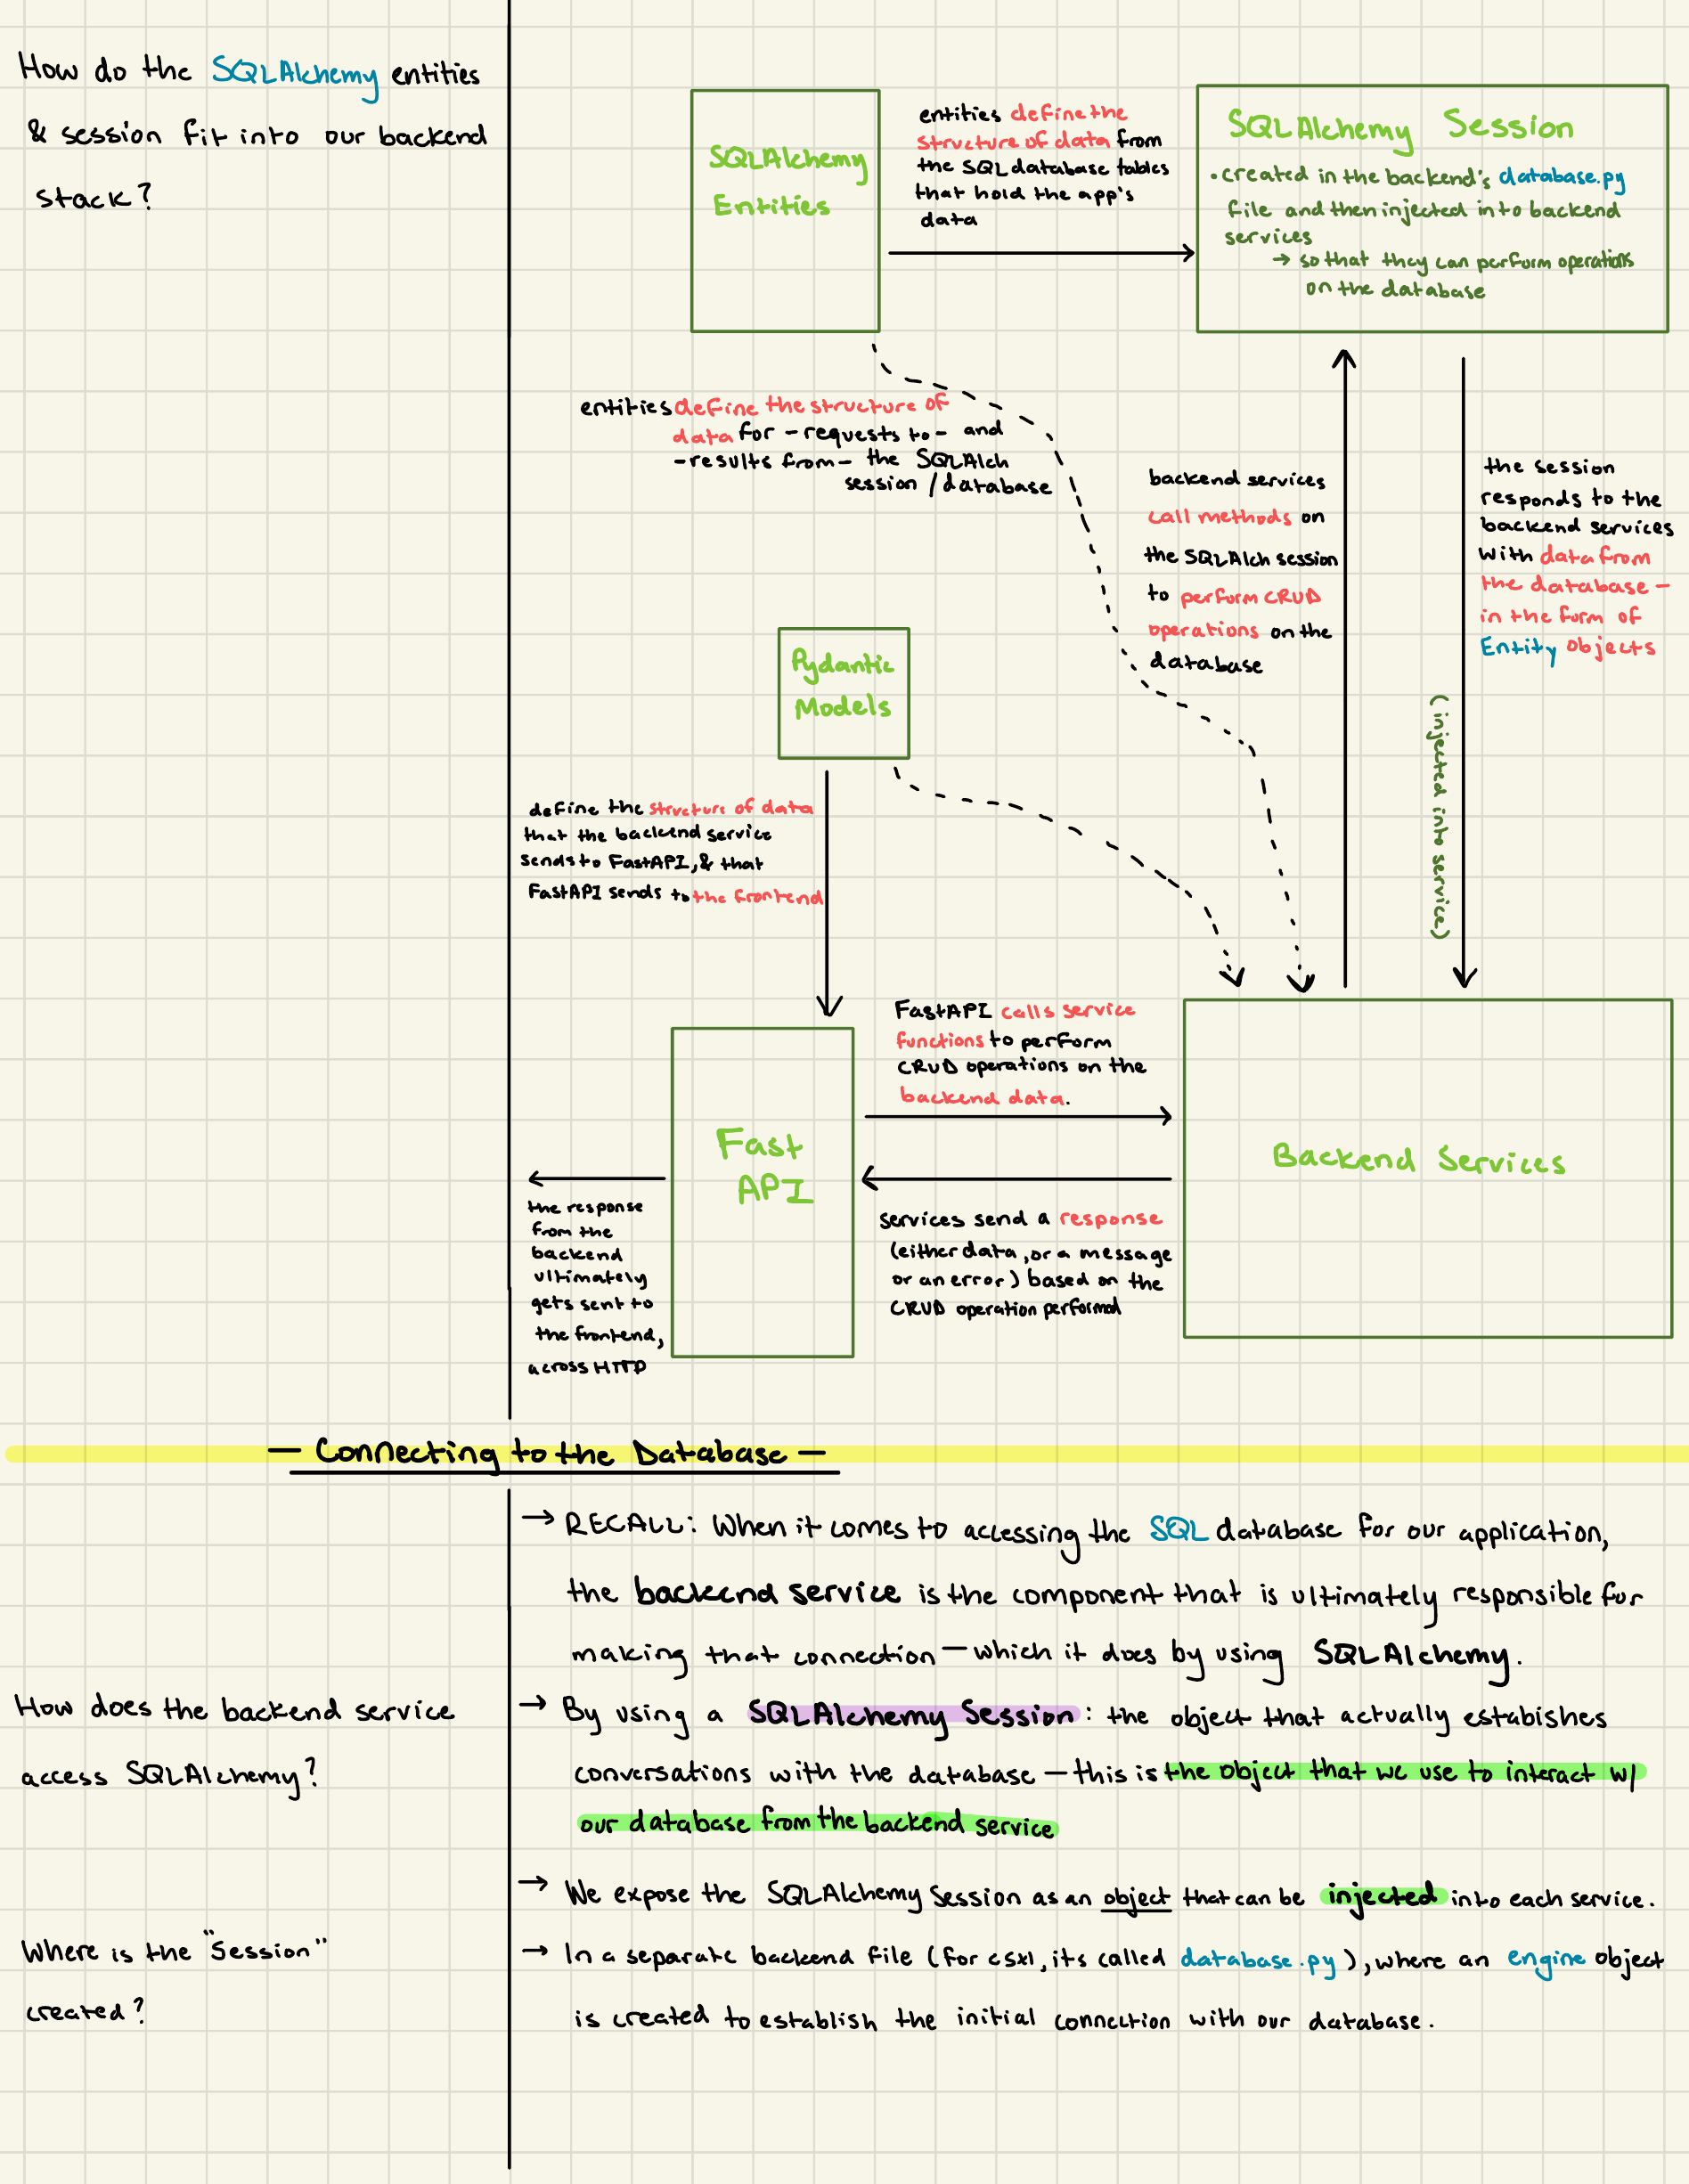 How do the SQLAlchemy entities
& session fit into our backend
stack?
SQLAlchemy
Entities
entities define the
structure of data from
the SQL database tables
that hold the app's
data
SQLAlchemy Session
• created in the backend's database.py
file and then injected into backend
services
→ so that they can perform operations
on the database
entities define the structure of
data for - requests to - and
- results from - the SQLAlch
session / database
backend services
call methods on
the SQLAlch session
to perform CRUD
operations on the
database
the session
responds to the
backend services
with data from
the database -
in the form of
Entity objects
(injected into service)
Pydantic
Models
define the structure of data
that the backend service
sends to FastAPI, & that
FastAPI sends to the frontend
FastAPI calls service
functions to perform
CRUD operations on the
backend data.
Fast
API
Backend Services
services send a response
(either data, or a message
or an error) based on the
CRUD operation performed
the response
from the
backend
ultimately
gets sent to
the frontend,
across HTTP
— Connecting to the Database —
→ RECALL: When it comes to accessing the SQL database for our application,
the backend service is the component that is ultimately responsible for
making that connection — which it does by using SQLAlchemy.
How does the backend service
access SQLAlchemy?
→ By using a SQLAlchemy Session: the object that actually estabishes
conversations with the database — this is the object that we use to interact w/
our database from the backend service
→ We expose the SQLAlchemy Session as an object that can be injected into each service.
Where is the "Session"
created?
→ In a separate backend file (for csxl, its called database.py), where an engine object
is created to establish the initial connection with our database.